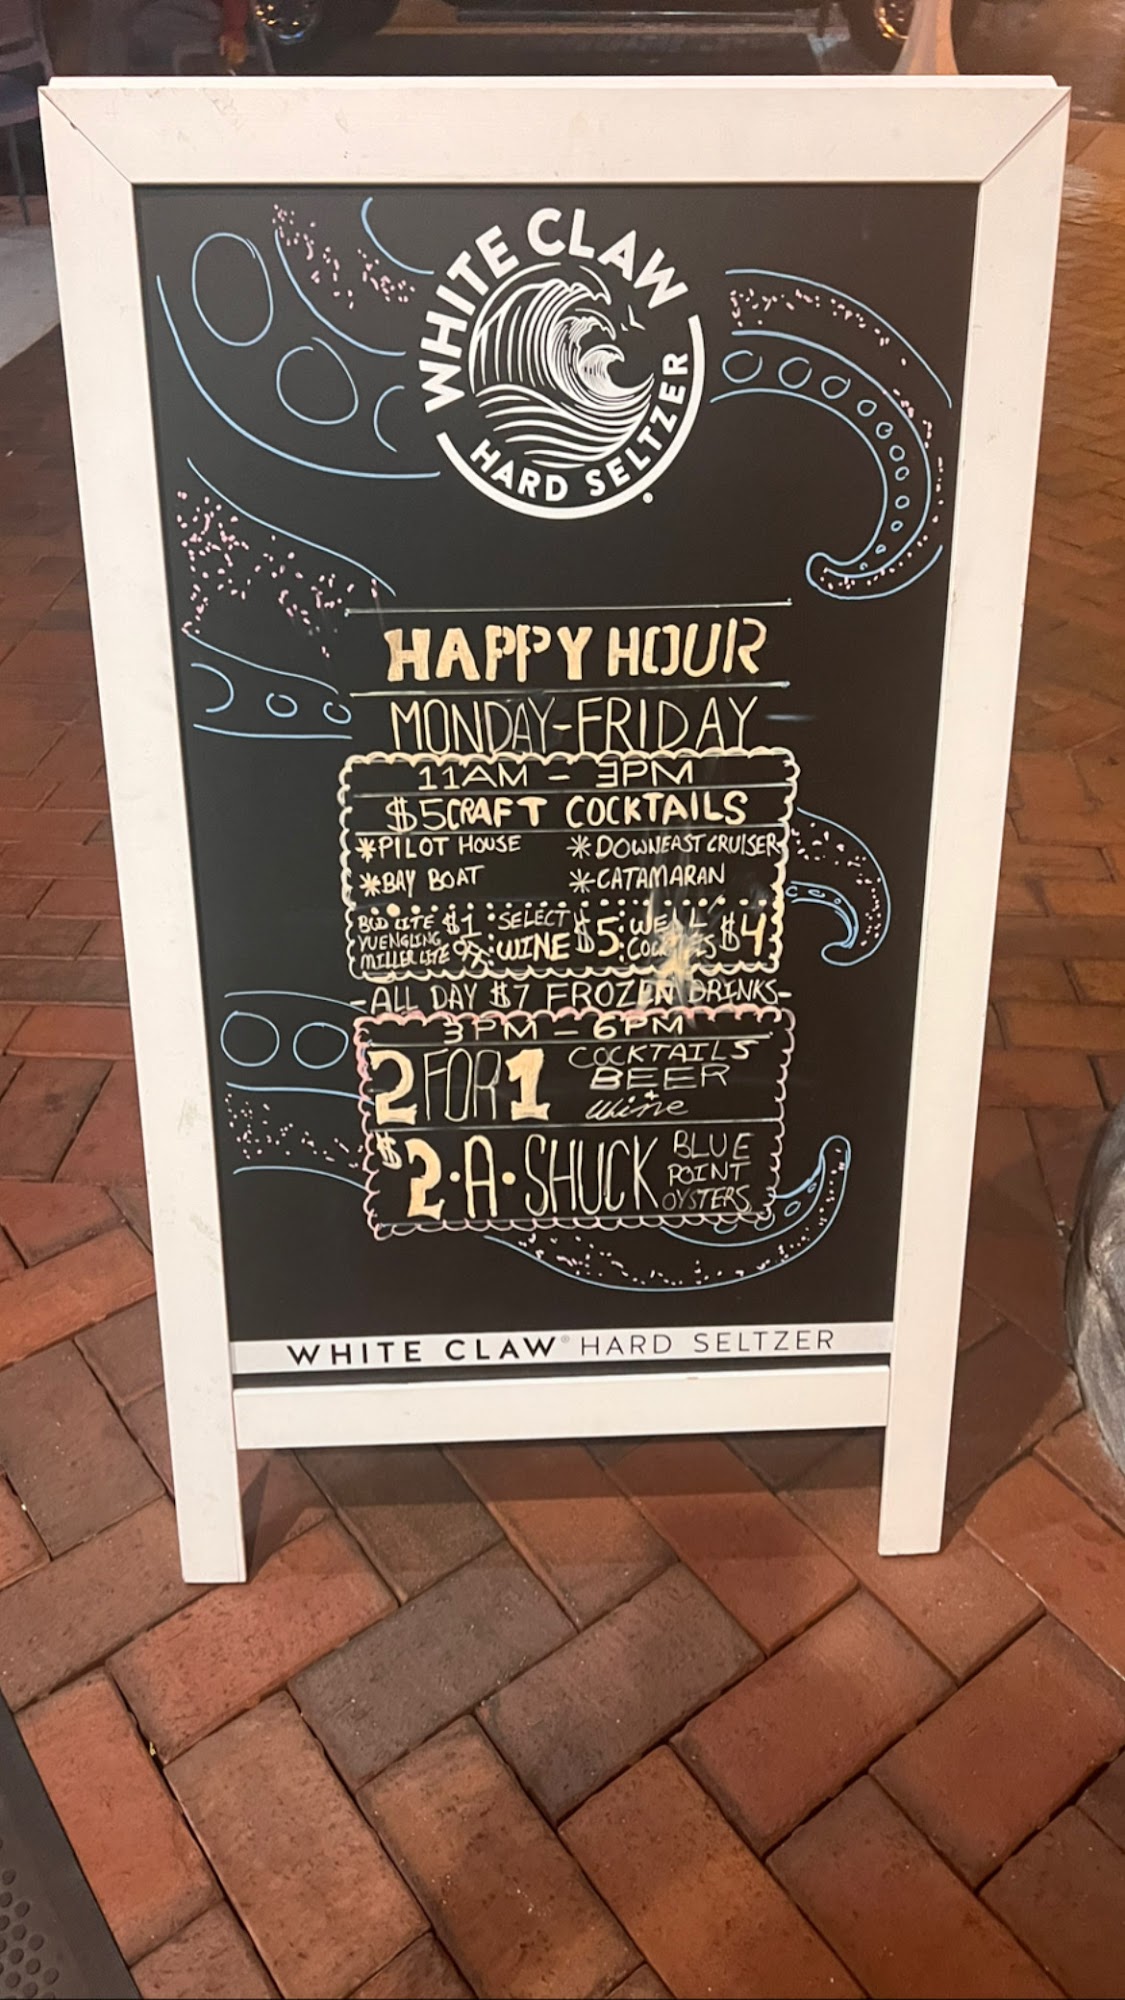 WHITE CLAW
HARD SELTZER
HAPPY HOUR
MONDAY-FRIDAY
11AM - 3PM
$5 CRAFT COCKTAILS
*PILOT HOUSE *DOWNEAST CRUISER
*BAY BOAT *CATAMARAN
BUD LITE
YUENGLING
MILLER LITE
$1
SELECT
WINE
$5
WELL
$4
-ALL DAY $7 FROZEN DRINKS-
3PM - 6PM
2 FOR 1
COCKTAILS
BEER
+
Wine
$2·A·SHUCK
BLUE
POINT
OYSTERS
WHITE CLAW® HARD SELTZER